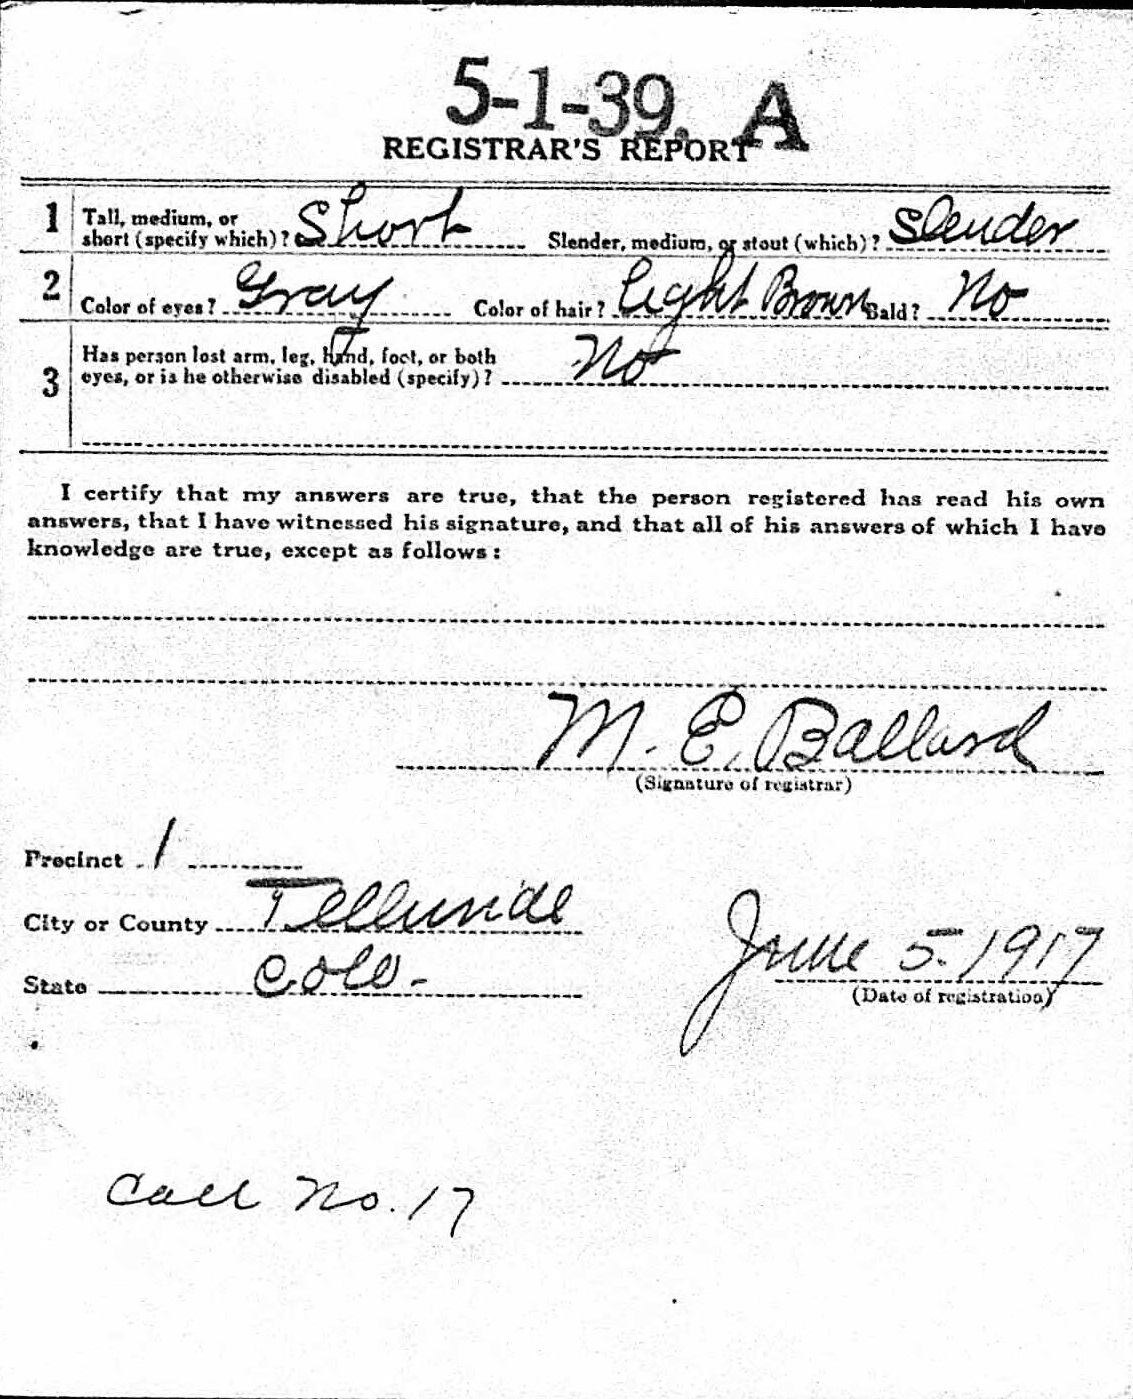 5-1-39. A
REGISTRAR'S REPORT
1 Tall, medium, or
short (specify which)? Short Slender, medium, or stout (which)? Slender
2 Color of eyes? Gray Color of hair? Light Brown Bald? No
3 Has person lost arm, leg, hand, foot, or both
eyes, or is he otherwise disabled (specify)? No
I certify that my answers are true, that the person registered has read his own
answers, that I have witnessed his signature, and that all of his answers of which I have
knowledge are true, except as follows:
M. E. Ballard
(Signature of registrar)
Precinct 1
City or County Telluride
State Colo.
June 5. 1917
(Date of registration)
Call No. 17